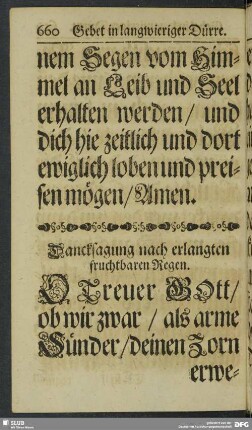 660 Gebet in langwieriger Dürre.
nem Segen vom Him-
mel an Leib und Seel
erhalten werden / und
dich hie zeitlich und dort
ewiglich loben und prei-
sen mögen / Amen.
Dancksagung nach erlangten
fruchtbaren Regen.
O Treuer GOtt /
ob wir zwar / als arme
Sünder / deinen Zorn
erwe-
SLUB